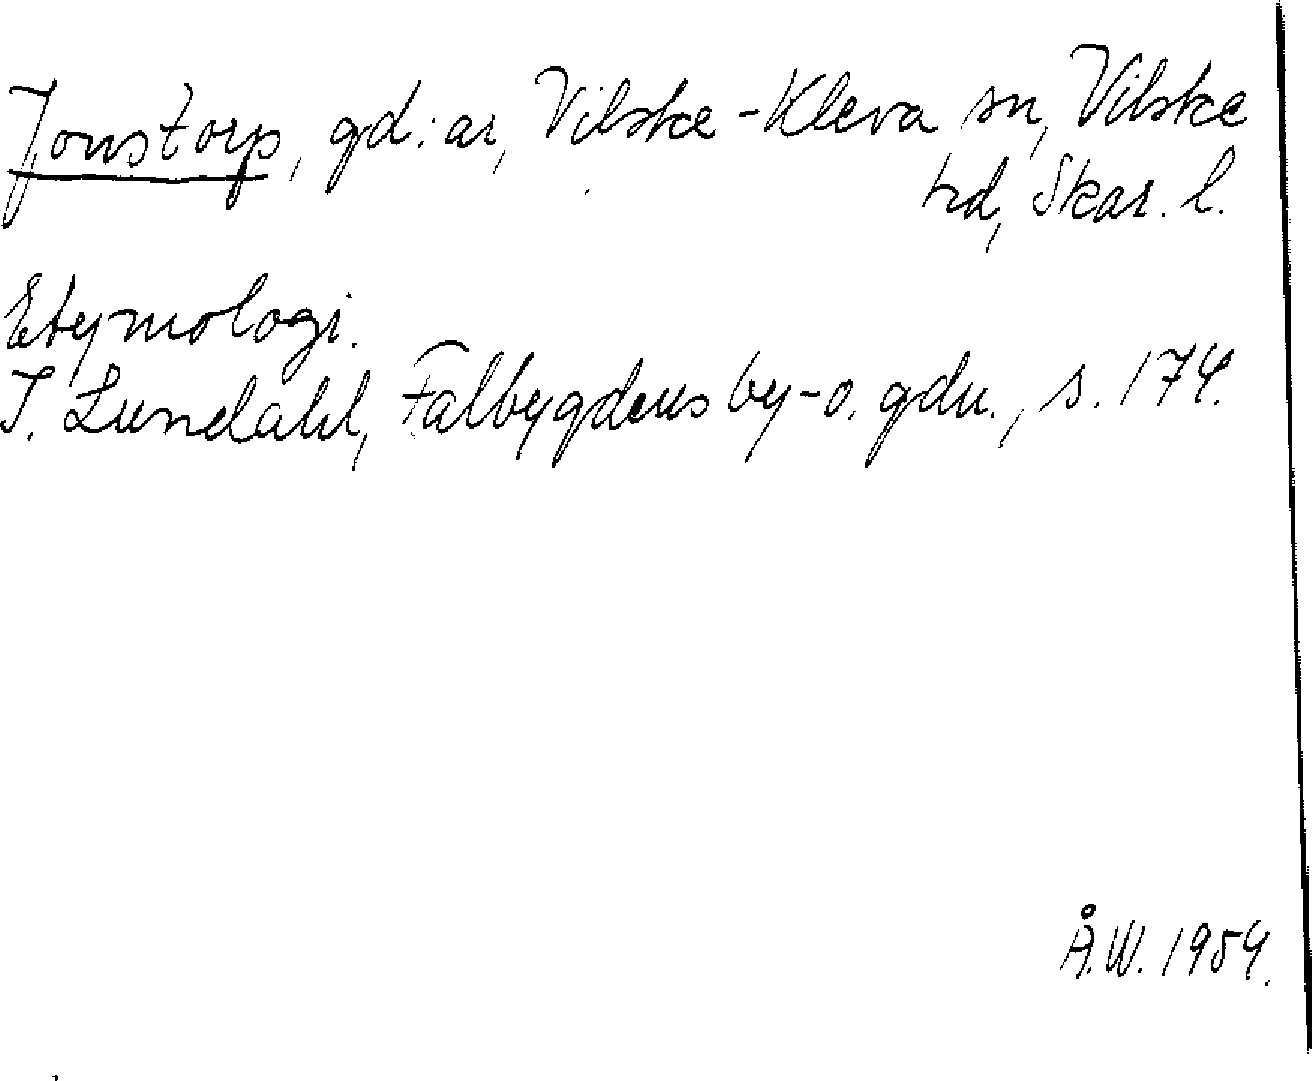 Jonstorp, gd:ar, Vilske-Kleva sn, Vilske
hd, Skar. l.
Etymologi.
I. Lundahl, Falbygdens by- o. gdn., s. 174.
Å.W. 1954.